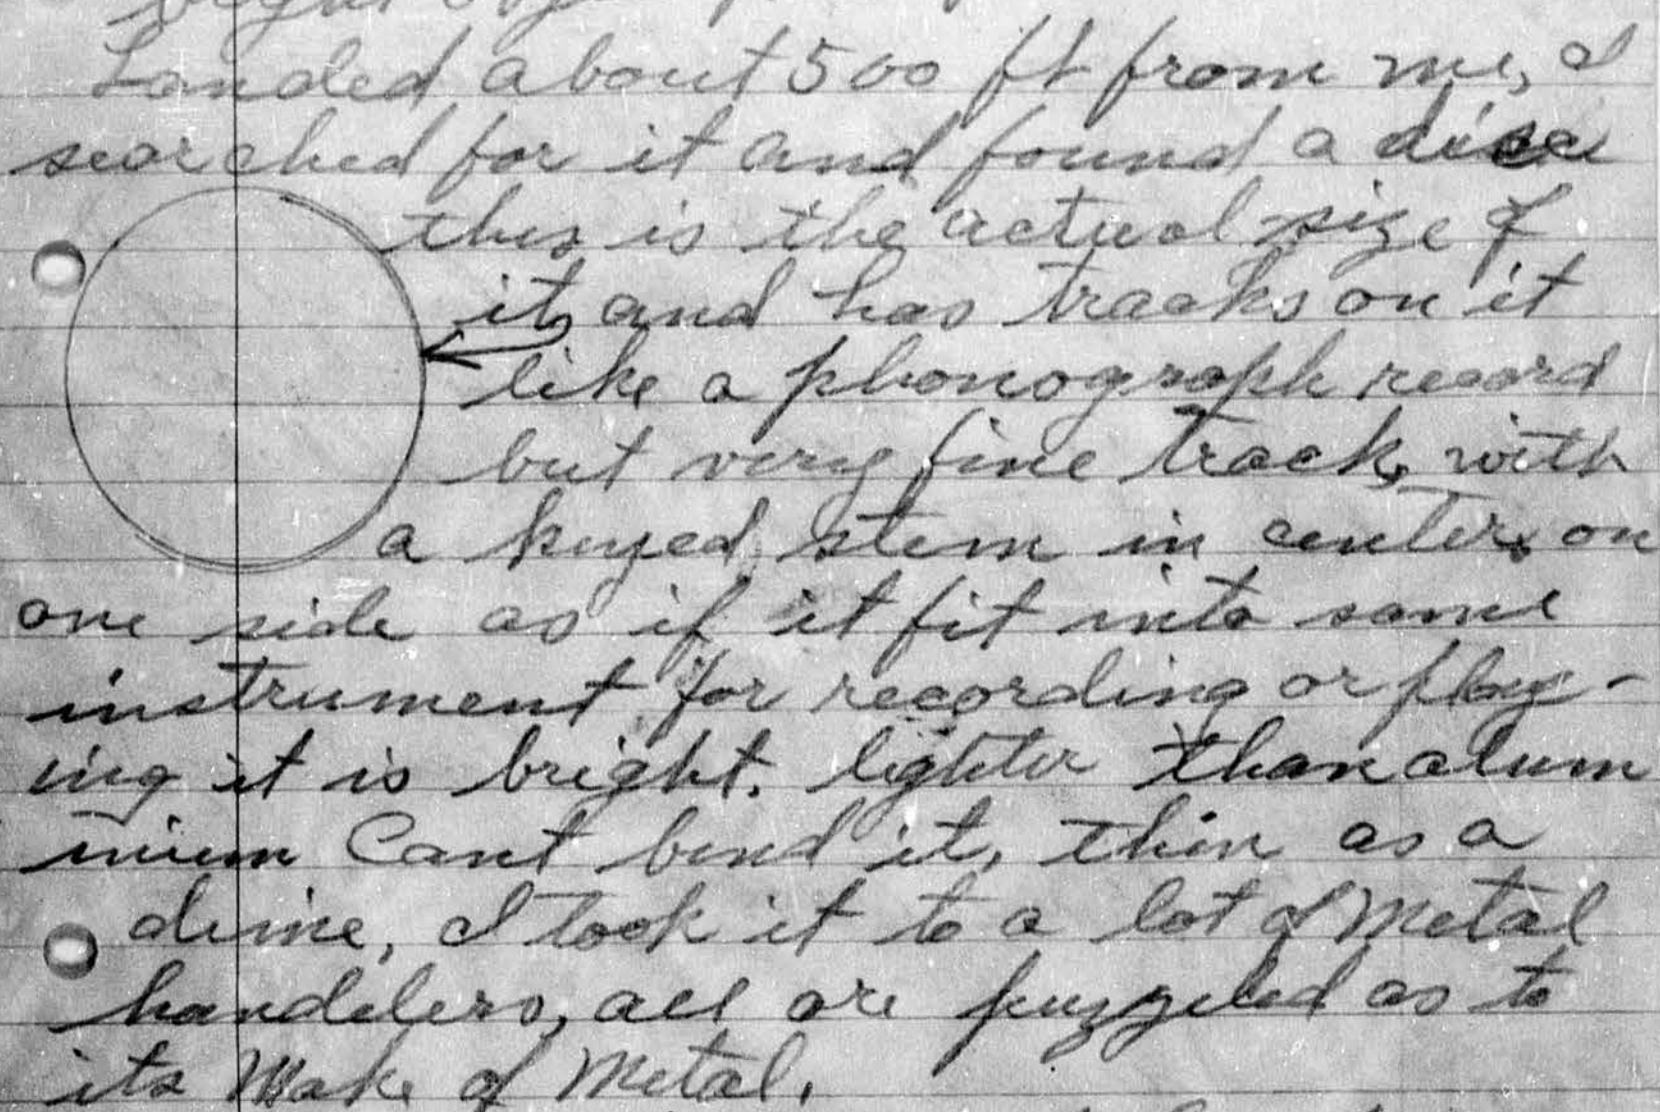 bright
Landed about 500 ft from me, I
searched for it and found a disc
this is the actual size of
it, and has tracks on it
like a phonograph record
but very fine track, with
a keyed stem in center, on
one side as if it fit into some
instrument for recording or play-
ing it is bright. lighter than alum
inium Cant bend it, thin as a
dime, I took it to a lot of Metal
handelers, all are puzzeled as to
its Make of Metal.